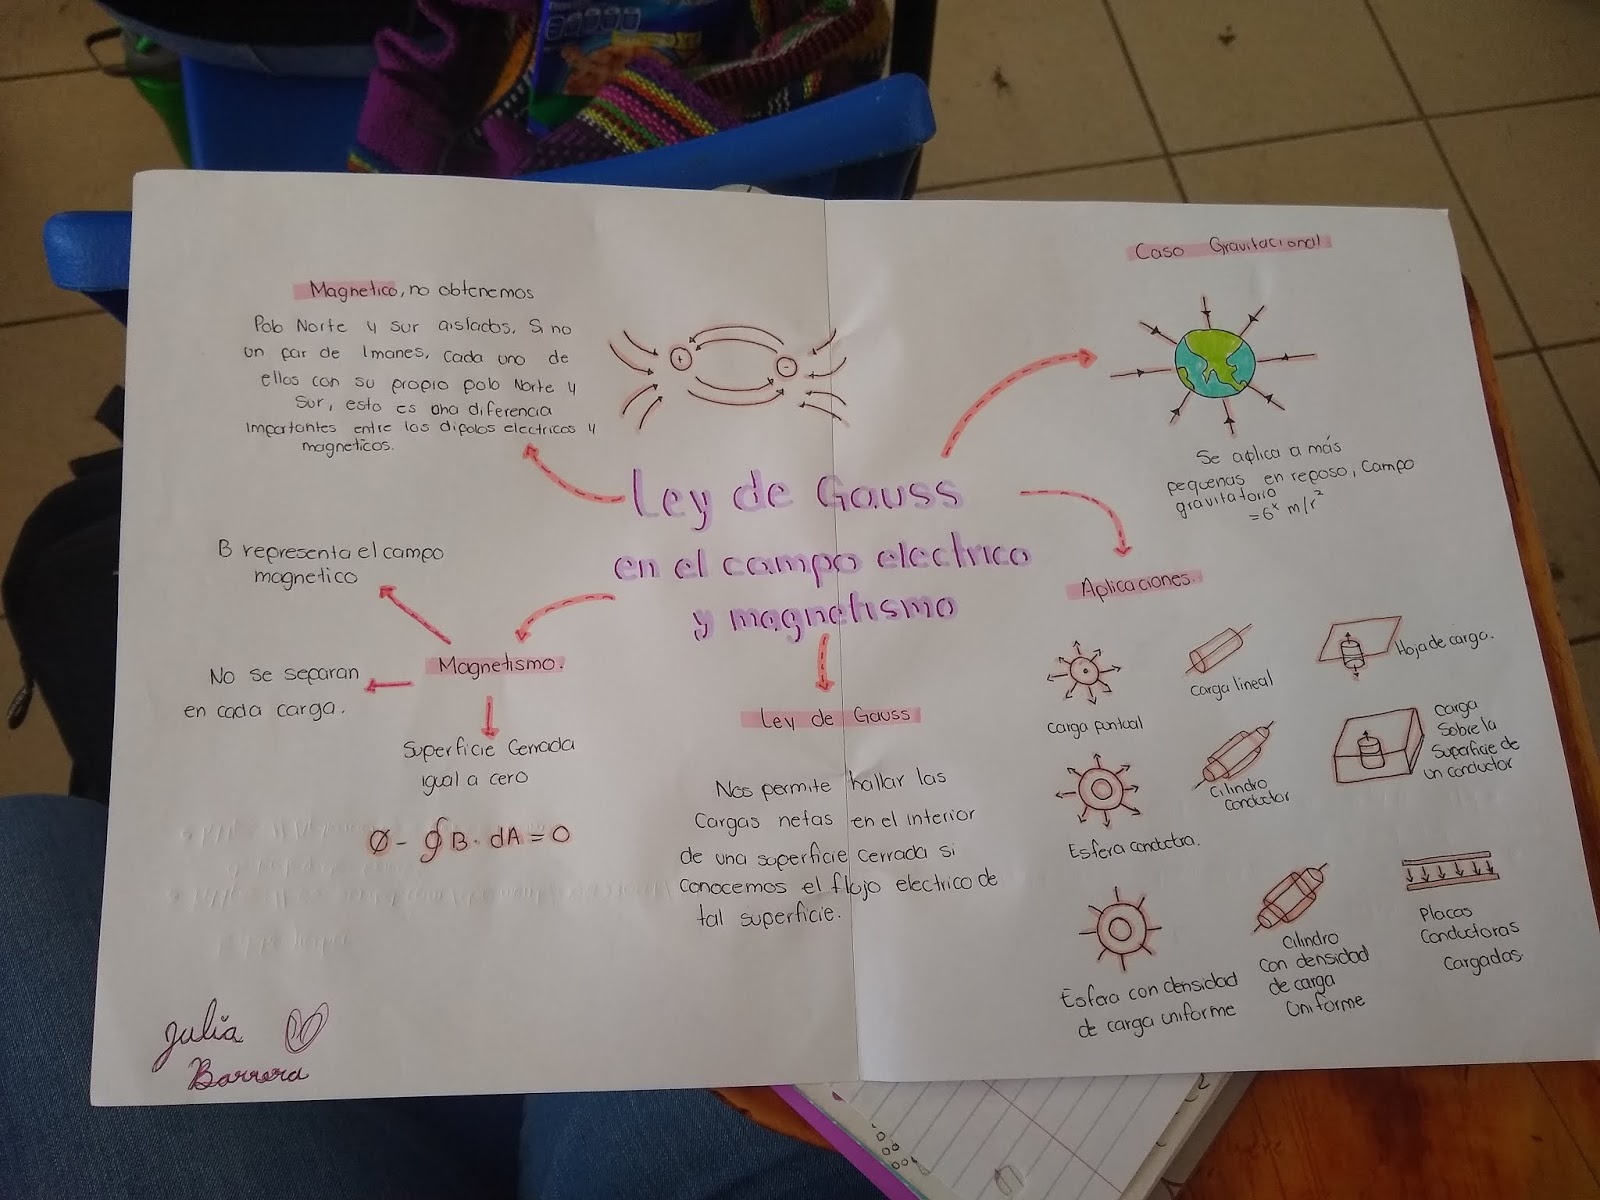 Magnetico, no obtenemos
Polo Norte y sur aislados, Si no
un par de Imanes, cada uno de
ellos con su propio polo Norte y
Sur, esto es una diferencia
importantes entre los dipolos electricos y
magneticos.
Caso Gravitacional
Se aplica a más
pequenas en reposo, Campo
gravitatorio
=6ˣ m/r²
Ley de Gauss
en el campo electrico
y magnetismo
B representa el campo
magnetico
Magnetismo.
No se separan
en cada carga.
Superficie Cerrada
igual a cero
Ø - ∮B · dA = 0
Ley de Gauss
Nos permite hallar las
Cargas netas en el interior
de una superficie cerrada si
Conocemos el flujo electrico de
tal superficie.
Aplicaciones.
Carga puntual
Carga lineal
Hoja de carga.
Esfera conductra.
Cilindro
conductor
Carga
Sobre la
Superficie de
un conductor
Esfera con densidad
de carga uniforme
Cilindro
Con densidad
de carga
Uniforme
Placas
Conductoras
Cargadas
Julia
Barrera